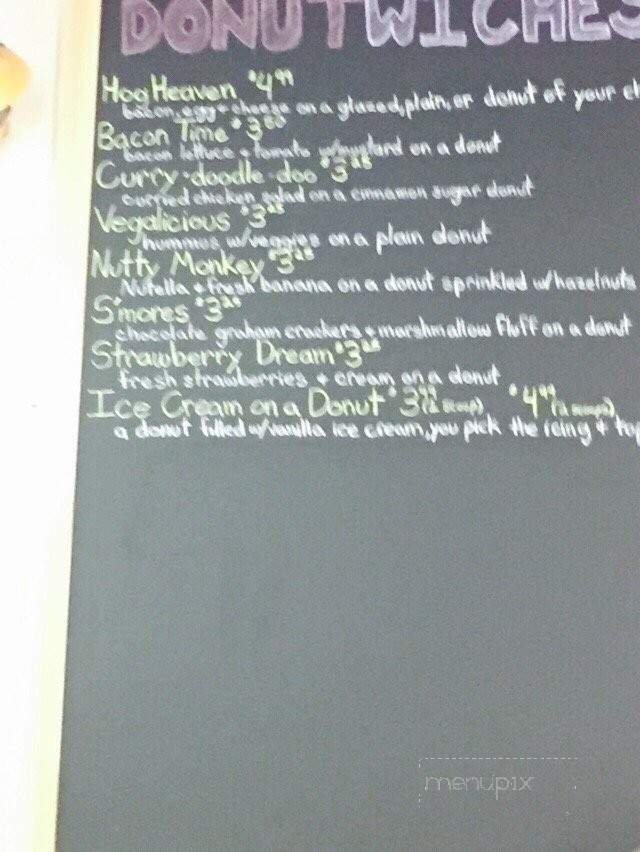 DONUTWICHES
Hog Heaven $4.99
bacon, egg + cheese on a glazed, plain, or donut of your ch
Bacon Time $3.50
bacon lettuce + tomato w/mustard on a donut
Curry-doodle-doo $3
curried chicken salad on a cinnamon sugar donut
Vegalicious $3
hummos w/veggies on a plain donut
Nutty Monkey $3
Nutella + fresh banana on a donut sprinkled w/hazelnuts
S'mores $3
chocolate graham crackers + marshmallow fluff on a donut
Strawberry Dream $3
fresh strawberries + cream on a donut
Ice Cream on a Donut $3.99 (1 scoop), $4.99 (2 scoops),
a donut filled w/vanilla ice cream, you pick the icing + top
menupix